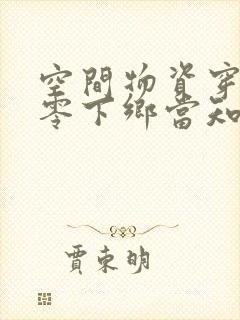 空間物資穿
零下鄉當知
賈東明